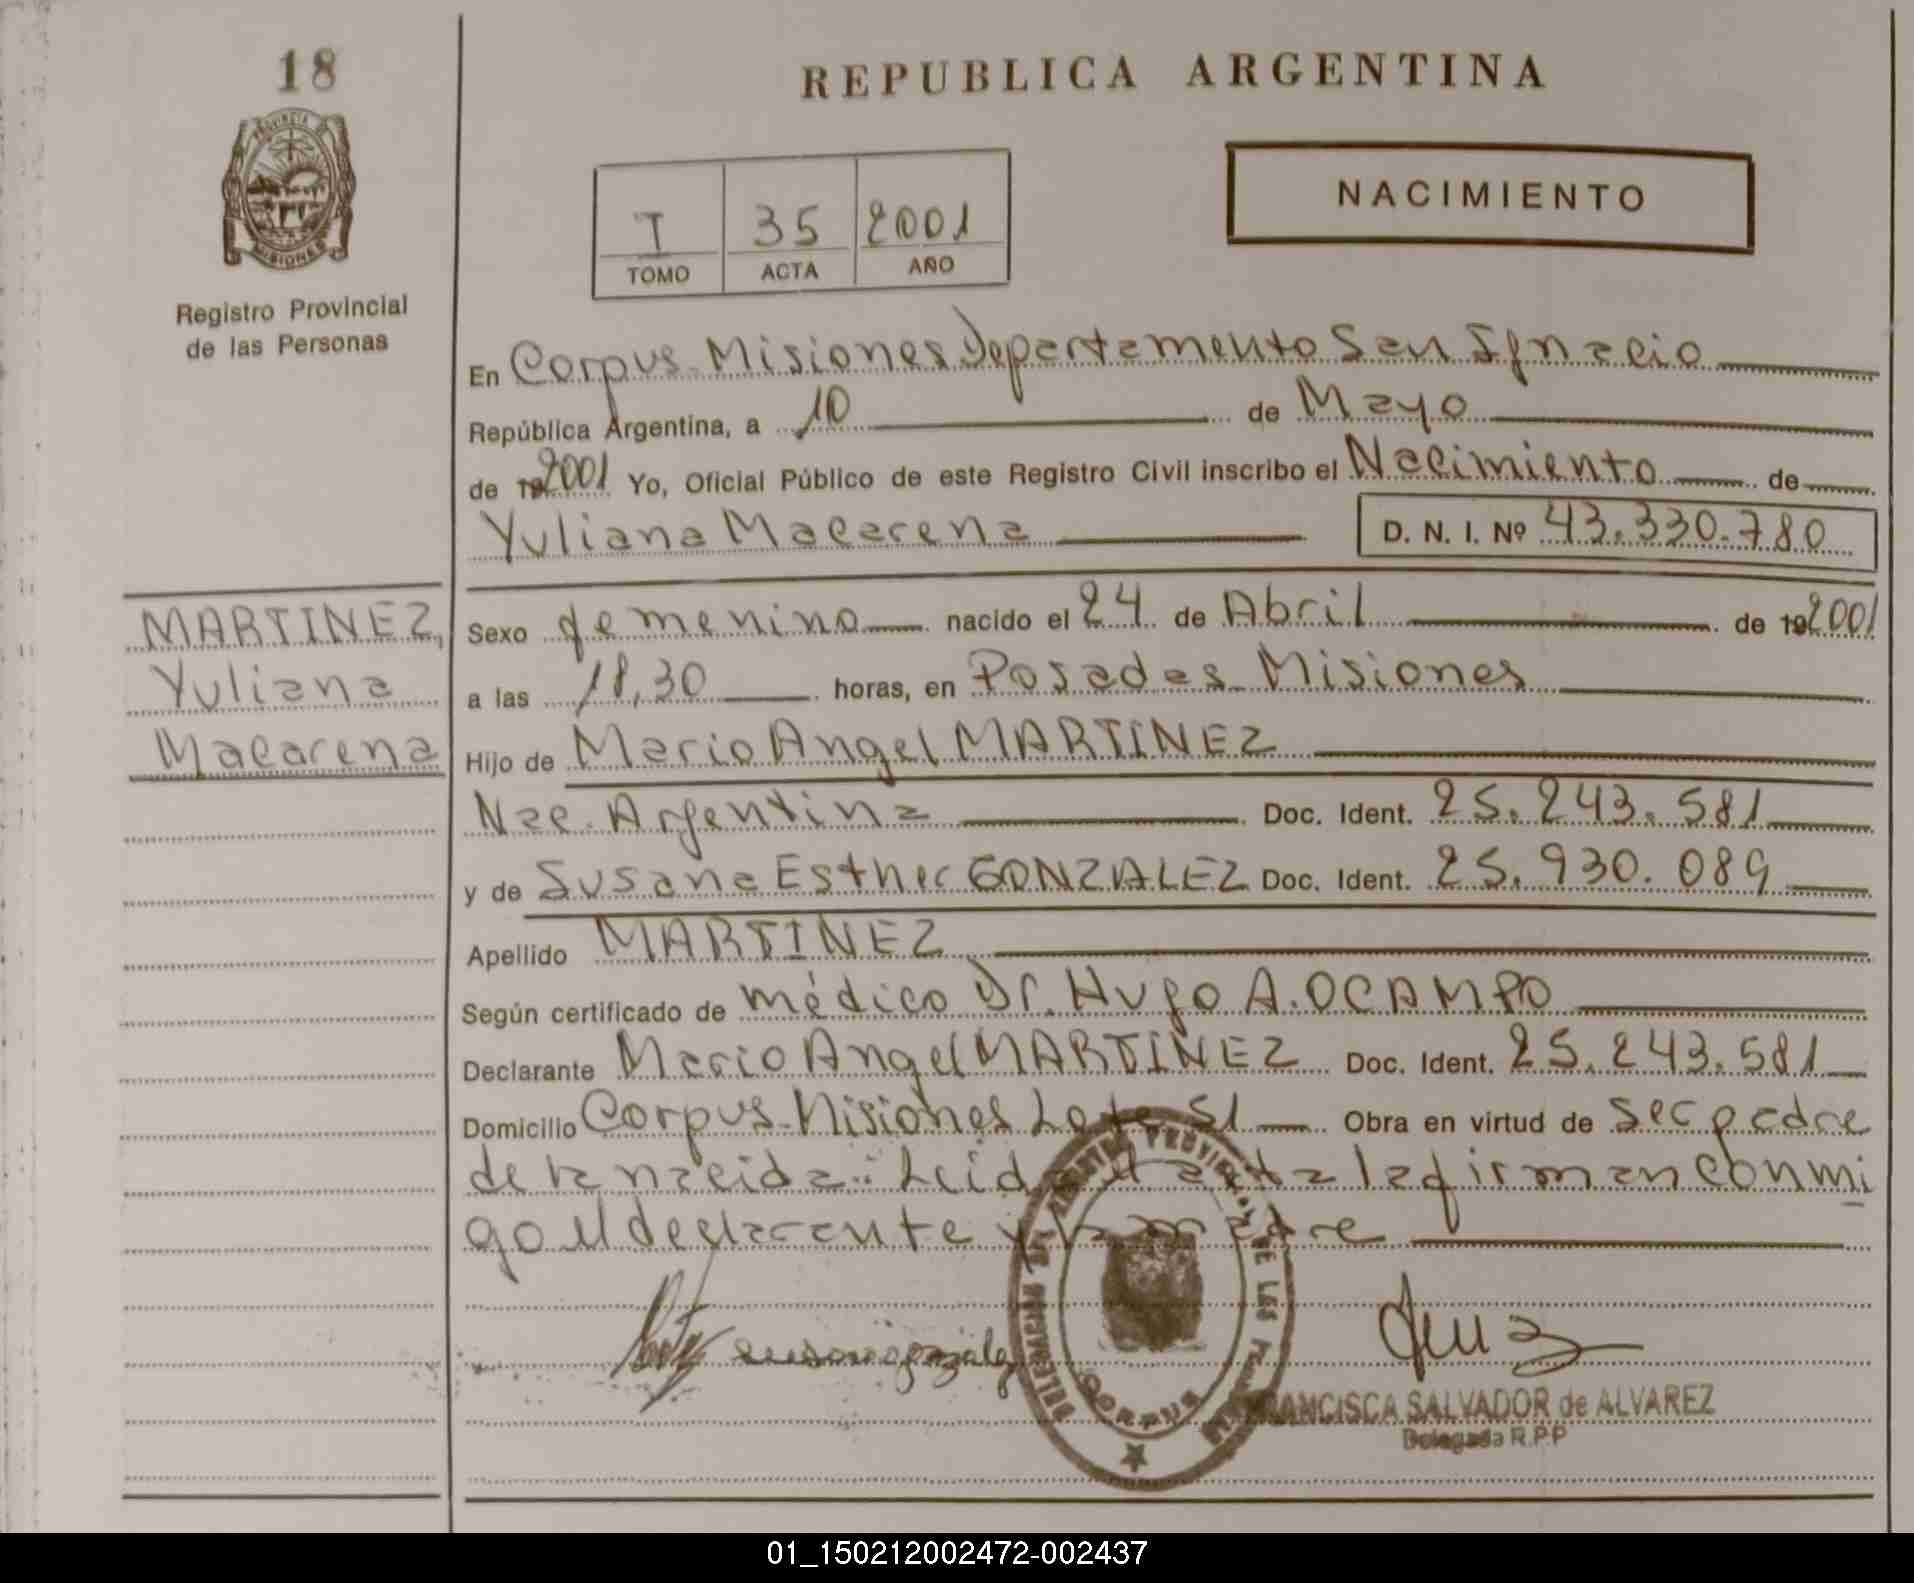 18
REPUBLICA ARGENTINA
PROVINCIA DE
MISIONES
NACIMIENTO
I 35 2001
TOMO ACTA AÑO
Registro Provincial
de las Personas
En Corpus-Misiones Departamento San Ignacio
República Argentina, a 10 de Mayo
de 192001 Yo, Oficial Público de este Registro Civil inscribo el Nacimiento de
Yuliana Macarena D. N. I. Nº 43.330.780
MARTINEZ,
Yuliana
Macarena
Sexo femenino nacido el 24 de Abril de 192001
a las 18,30 horas, en Posadas-Misiones
Hijo de Mario Angel MARTINEZ
Nac. Argentina Doc. Ident. 25.243.581
y de Susana Esther GONZALEZ Doc. Ident. 25.930.089
Apellido MARTINEZ
Según certificado de médico Dr. Hugo A. OCAMPO
Declarante Mario Angel MARTINEZ Doc. Ident. 25.243.581
Domicilio Corpus-Misiones Lote 51 Obra en virtud de ser padre
de la nacida.: Leida el acta la firman conmi
go el declarante y la madre
CORPUS
FRANCISCA SALVADOR de ALVAREZ
Delegada R.P.P
01_150212002472-002437